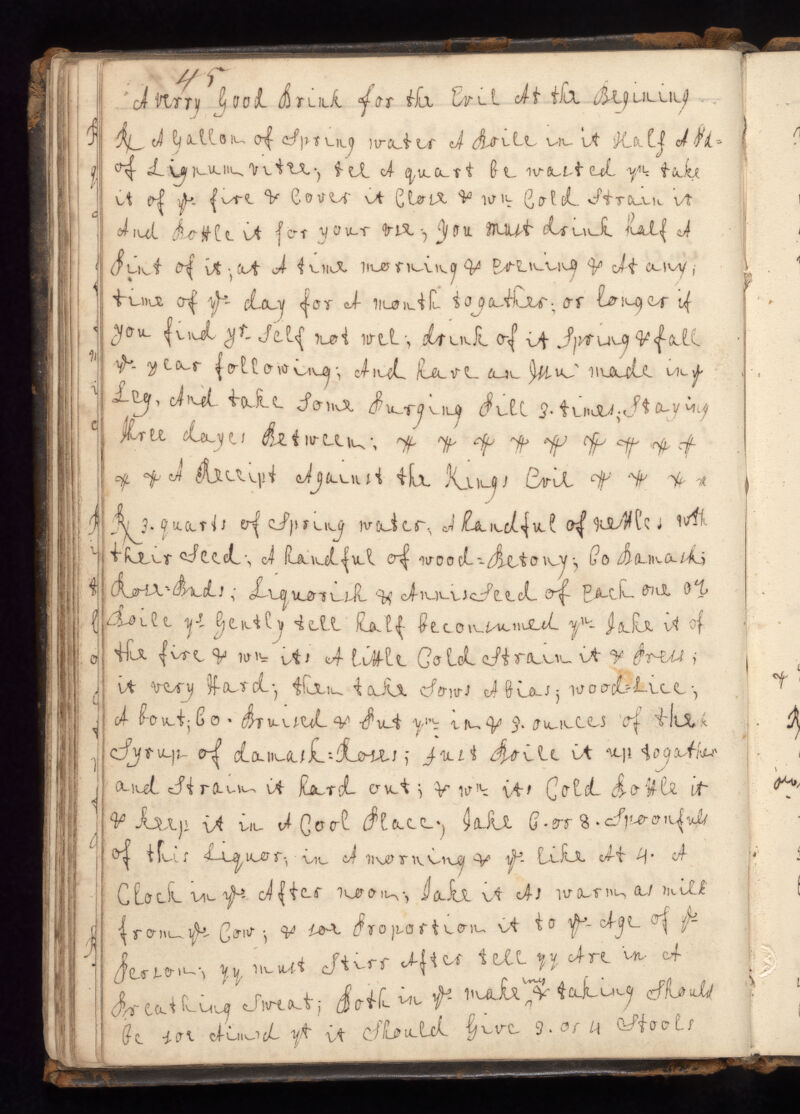 45
A verry Good Drink for the Evil At the Begining
℞ A Gallon of Spring water A Boile in it Half A Pd=
of Lignum vitee; tel A quart be wasted yn take
it of ye fire & Cover it Close & wn Cold Strain it
And Bottle it for your use; you must drink half A
Pint of it; at A time morning & Evening & At any;
time of ye day for A month togather; or longer if
you find yr Self not wel; drink of it Spring & fall
ye year following; And have an Issu made in ye
Leg, And take Some Purging Pill 3. times; Staying
three dayes Between;
A Receipt Against the Kings Evil
℞ 3. quarts of Spring water, A handful of nettles wth
their Seed; A handful of wood=Betony; 60 Damask;
Rose=Buds; Liquorish & AnnisSeed of Each one oz
Boile ys Gently tell half beconsumed yn Take it of
the fire & wn its A little Cold Strain it & Press;
it very Hard; then take Sows Abias; wood=Lice;
A bout; 60. Bruised & Put ym in & 3. ounces of the
Syrup of damask=Roses; Just Boile it up togather
and Strain it hard out; & wn its Cold Bottle it
& keep it in A Cool Place; Take 6. or 8. Spoonfuls
of this Liquor, in A morning & ye like At 4. A
Clock in ye After noon; Take it As warm as milk
from ye Cow; & soe Proportion it to ye Age of ye
Person; yy must Stirr After tell yy Are in A
Breathing Sweat; Both in ye makeing & taking Should
be soe Aimed yt it Should Give 3. or 4 Stools